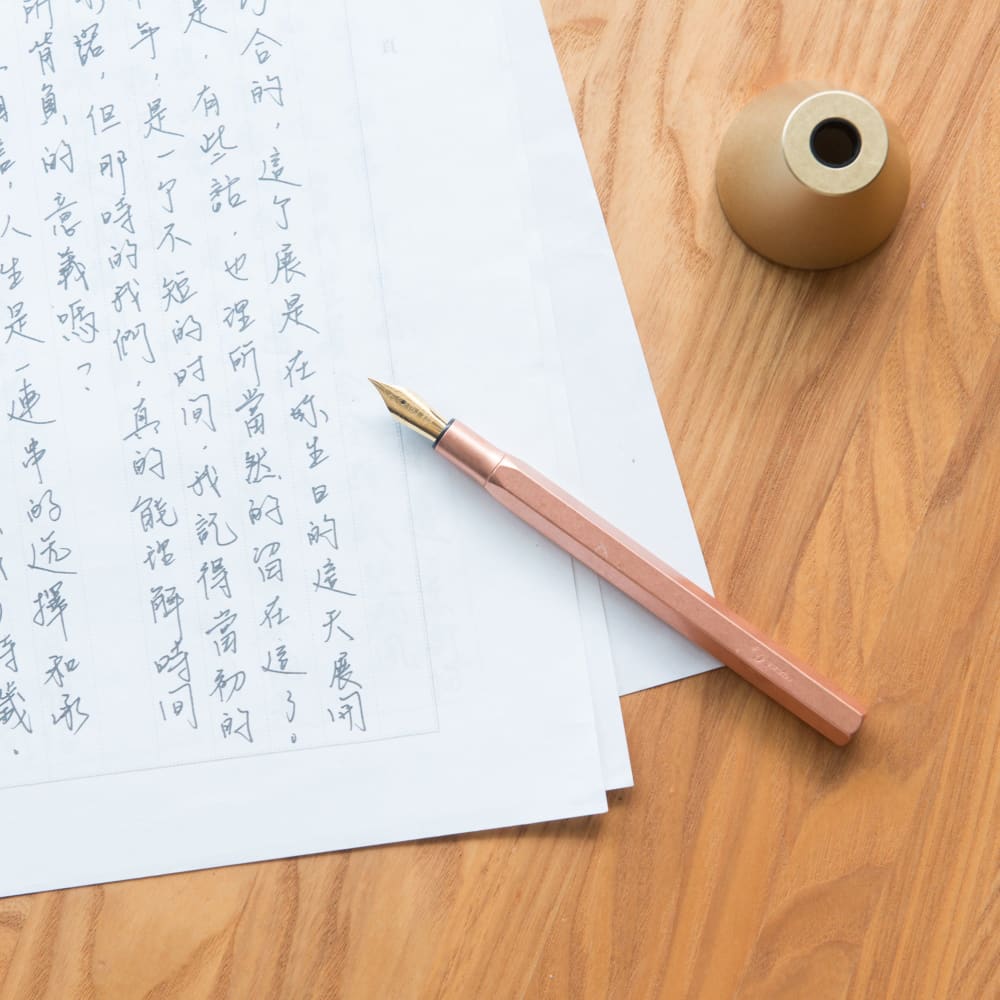 合的，這个展是在妳生日的這天展開
是，有些話，也理所當然的留在這了。
年，是一个不短的时间，我記得當初的
諾，但那時的我們，真的能理解時间
所背負的意義嗎？
人生是一連串的选擇和承
時